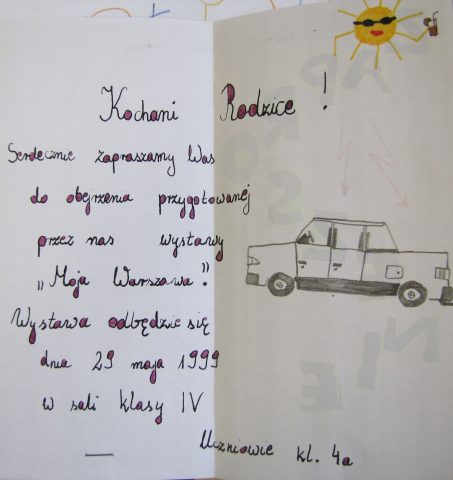 Kochani Rodzice!
Serdecznie zapraszamy Was
do obejrzenia przygotowanej
przez nas wystawy
"Moja Warszawa."
Wystawa odbędzie się
dnia 29 maja 1999
w sali klasy IV
Uczniowie kl. 4a